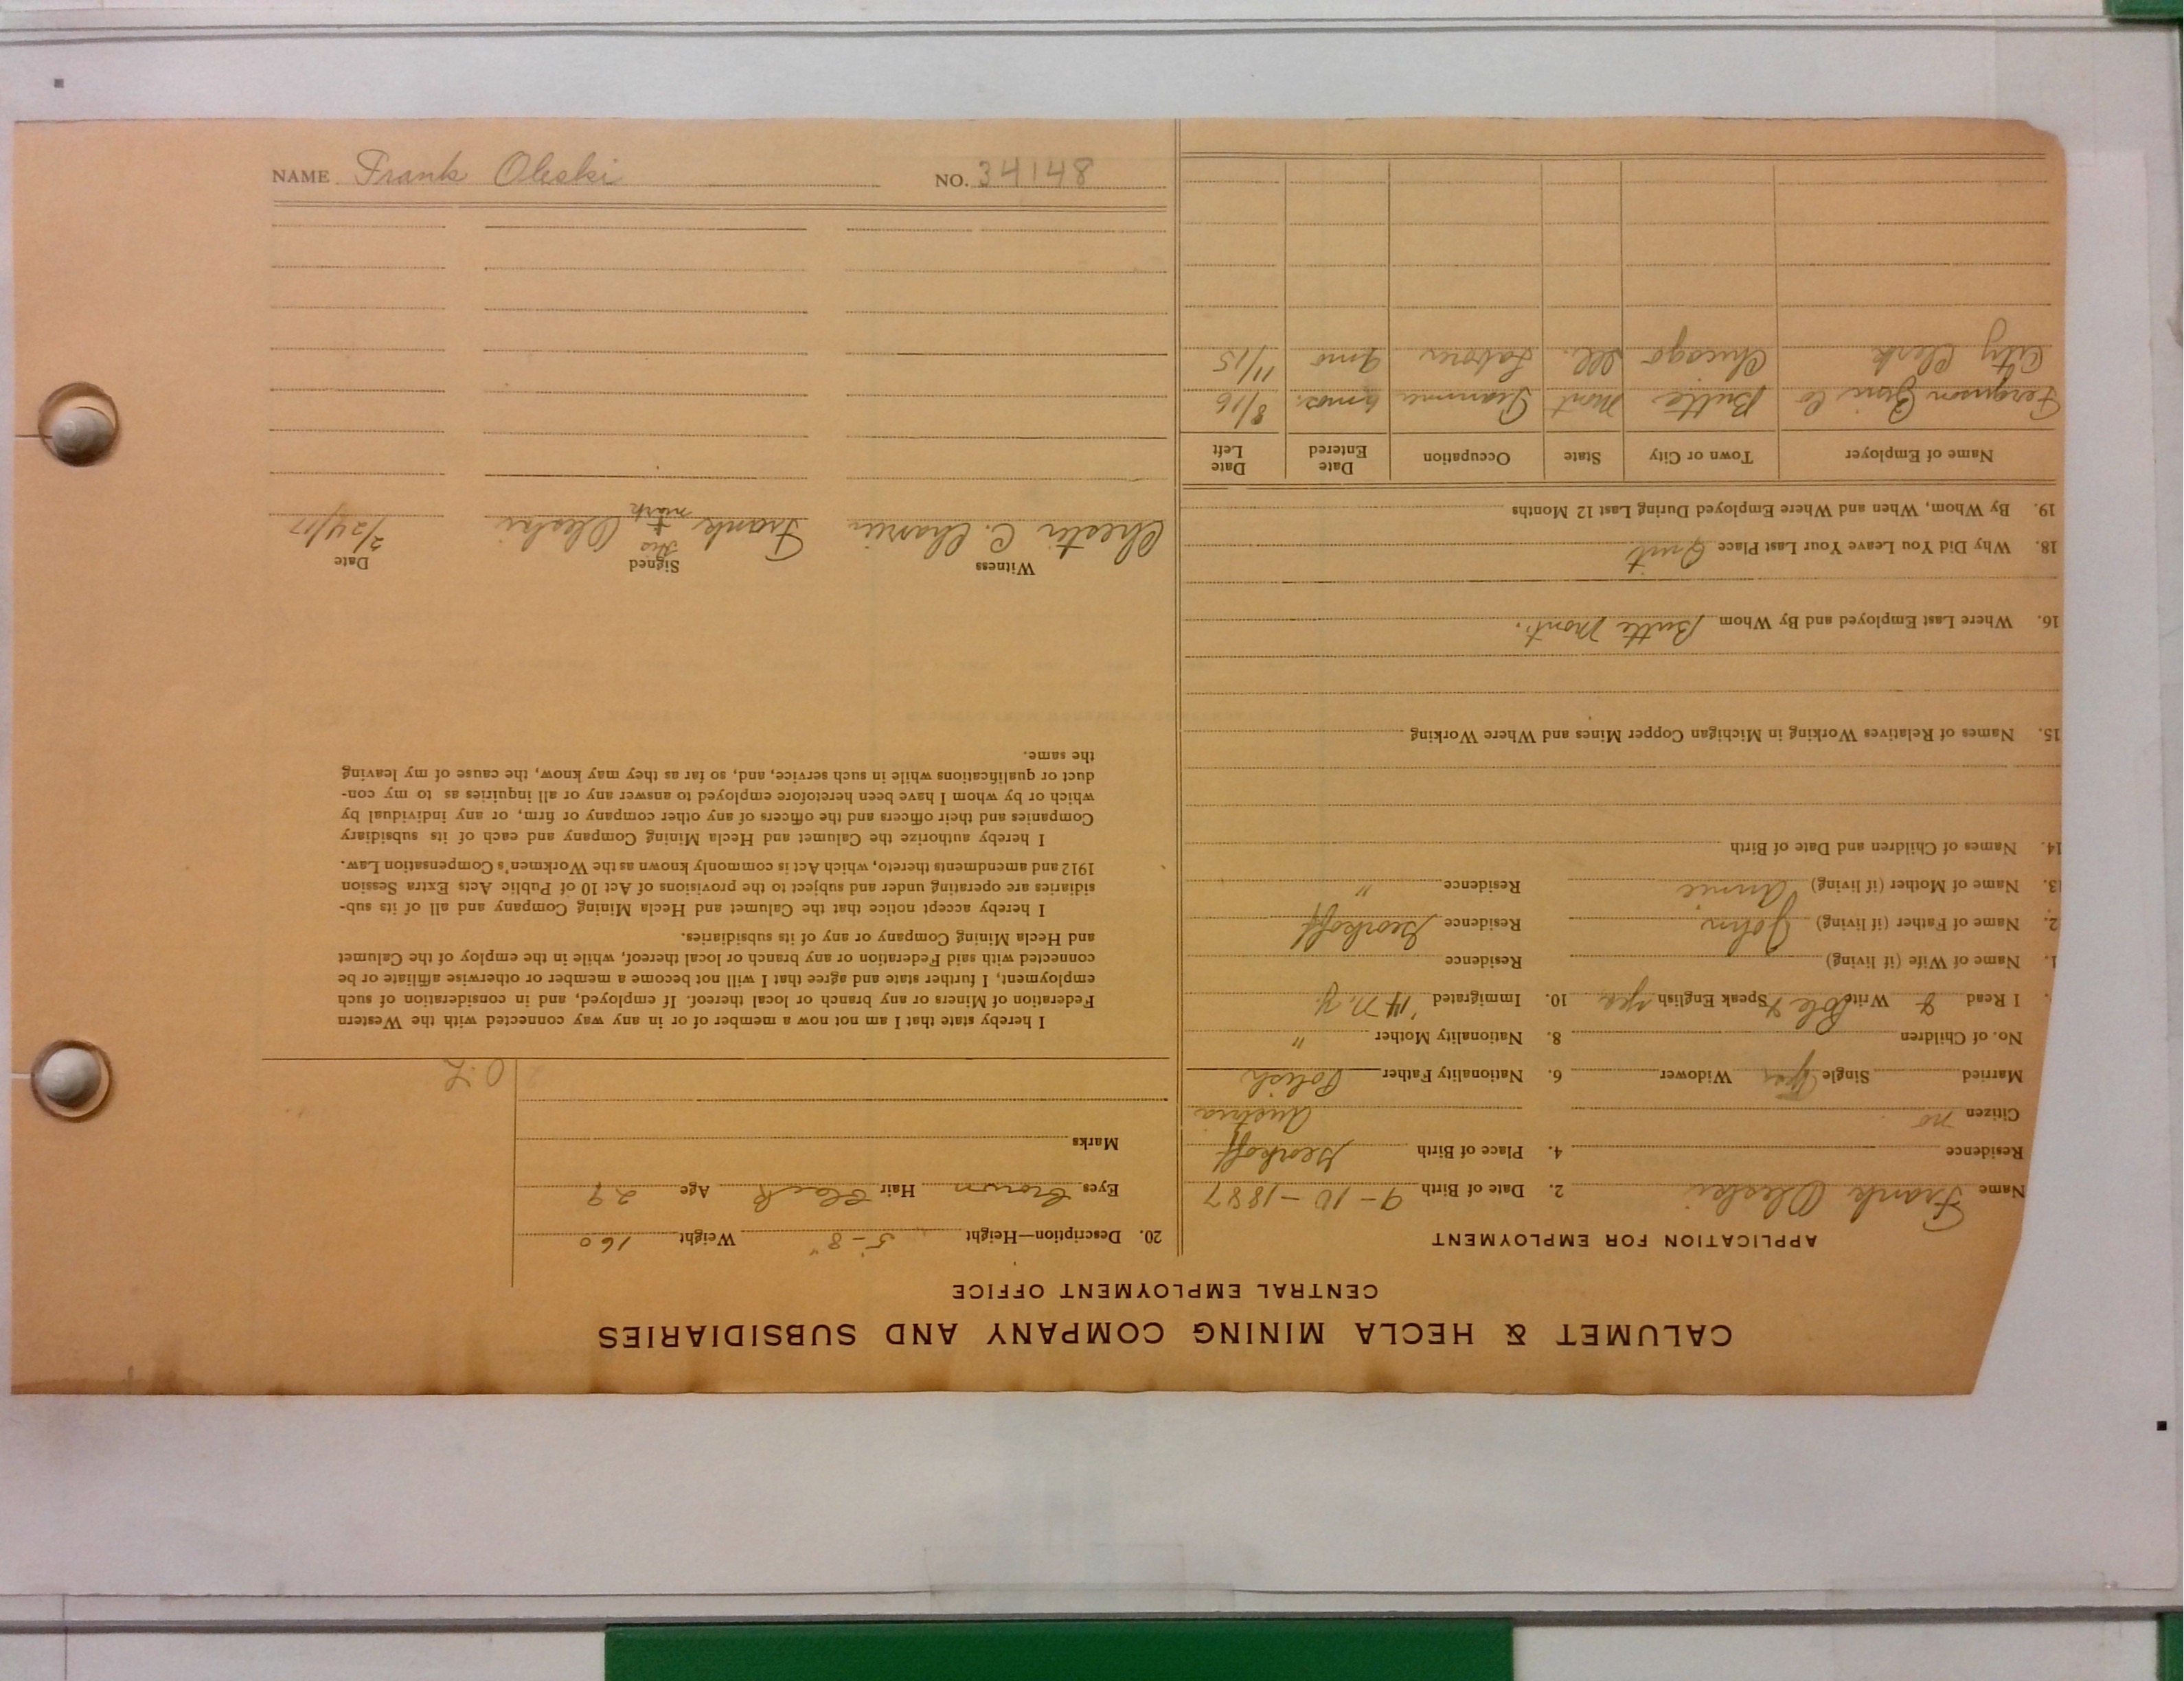 NAME Frank Oleski NO. 34148
CALUMET & HECLA MINING COMPANY AND SUBSIDIARIES
CENTRAL EMPLOYMENT OFFICE
APPLICATION FOR EMPLOYMENT
Name Frank Oleski 2. Date of Birth 9-10-1887
Residence 4. Place of Birth
Citizen no Austria
Married Single yes Widower 6. Nationality Father Polish
No. of Children 8. Nationality Mother "
I Read & Write Pole Speak English yes 10. Immigrated '14 N.Y.
1. Name of Wife (if living) Residence
2. Name of Father (if living) John Residence
13. Name of Mother (if living) Annie Residence "
14. Names of Children and Date of Birth
15. Names of Relatives Working in Michigan Copper Mines and Where Working
16. Where Last Employed and By Whom Butte Mont.
18. Why Did You Leave Your Last Place Quit
19. By Whom, When and Where Employed During Last 12 Months
Name of Employer Town or City State Occupation Date Entered Date Left
Ferguson Co Butte Mont 6 mos. 8/16
City Clerk Chicago Ill. Laborer 9 mo 11/15
20. Description—Height 5-8" Weight 160
Eyes Brown Hair Black Age 29
Marks
I hereby state that I am not now a member of or in any way connected with the Western
Federation of Miners or any branch or local thereof. If employed, and in consideration of such
employment, I further state and agree that I will not become a member or otherwise affiliate or be
connected with said Federation or any branch or local thereof, while in the employ of the Calumet
and Hecla Mining Company or any of its subsidiaries.
I hereby accept notice that the Calumet and Hecla Mining Company and all of its sub-
sidiaries are operating under and subject to the provisions of Act 10 of Public Acts Extra Session
1912 and amendments thereto, which Act is commonly known as the Workmen's Compensation Law.
I hereby authorize the Calumet and Hecla Mining Company and each of its subsidiary
Companies and their officers and the officers of any other company or firm, or any individual by
which or by whom I have been heretofore employed to answer any or all inquiries as to my con-
duct or qualifications while in such service, and, so far as they may know, the cause of my leaving
the same.
Witness Signed Date
Chester C. Frank his + mark Oleski 2/24/17